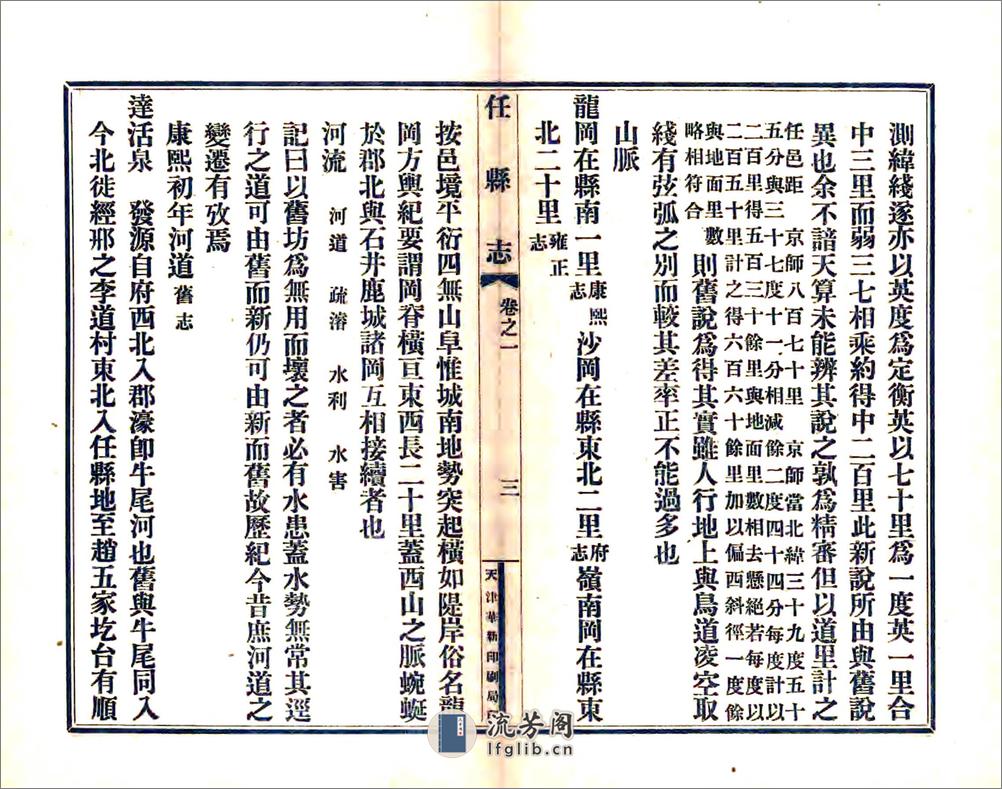 測緯綫遂亦以英度爲定衡英以七十里爲一度英一里合
中三里而弱三七相乘約得中二百里此新說所由與舊說
異也余不諳天算未能辨其說之孰爲精審但以道里計之
任邑距　京師八百七十里　京師當北緯三十九度五十
五分與三十七度十一分相減餘二度四十四分每度計以
二百里得五百三十餘里與地面里數相去懸絕若每度以
二百五十里計之得六百六十餘里加以偏西斜徑一度餘
與地面里數
略相符合
則舊說爲得其實雖人行地上與鳥道凌空取
綫有弦弧之別而較其差率正不能過多也
山脈
龍岡在縣南一里康熙志沙岡在縣東北二里府志嶺南岡在縣東
北二十里雍正志
任縣志
卷之一
三
天津華新印刷局
按邑境平衍四無山阜惟城南地勢突起橫如隄岸俗名龍
岡方輿紀要謂岡脊橫亘東西長二十里蓋西山之脈蜿蜒
於郡北與石井鹿城諸岡互相接續者也
河流　河道　疏濬　水利　水害
記曰以舊坊爲無用而壞之者必有水患蓋水勢無常其逕
行之道可由舊而新仍可由新而舊故歷紀今昔庶河道之
變遷有攷焉
康熙初年河道舊志
達活泉　發源自府西北入郡濠卽牛尾河也舊與牛尾同入
今北徙經邢之李道村東北入任縣地至趙五家圪台有順
流芳阁
lfglib.cn